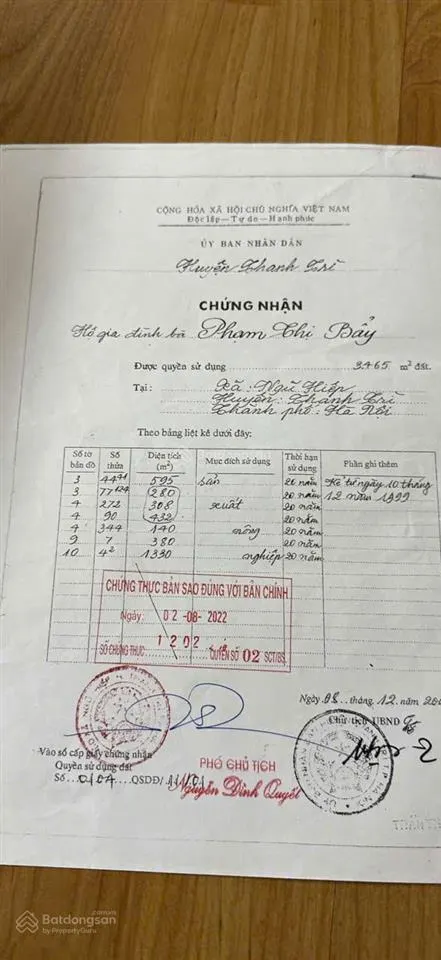 CỘNG HÒA XÃ HỘI CHỦ NGHĨA VIỆT NAM
Độc lập—Tự do—Hạnh phúc
ỦY BAN NHÂN DÂN
Huyện Thanh Trì
CHỨNG NHẬN
Hộ gia đình bà Phạm Thị Bẩy
Được quyền sử dụng 3465 m² đất.
Tại: Xã: Ngũ Hiệp
Huyện: Thanh Trì
Thành phố: Hà Nội
Theo bảng liệt kê dưới đây:
Số tờ bản đồ Số thửa Diện tích (m²) Mục đích sử dụng Thời hạn sử dụng Phần ghi thêm
3 595 sản 20 năm Kể từ ngày 10 tháng
3 280 20 năm 12 năm 1999
4 272 308 xuất 20 năm
4 90 432 20 năm
4 344 140 nông 20 năm
9 7 380 20 năm
10 4² 1330 nghiệp 20 năm
CHỨNG THỰC BẢN SAO ĐÚNG VỚI BẢN CHÍNH
Ngày: 02-08-2022
SỐ CHỨNG THỰC 1202 QUYỂN SỐ 02 SCT/BS
Ngày 08 tháng 12 năm
Chủ tịch UBND
Vào sổ cấp giấy chứng nhận
Quyền sử dụng đất
Số 0104 QSDĐ/
PHÓ CHỦ TỊCH
Nguyễn Đình Quyết
Batdongsan
.com.vn
by PropertyGuru